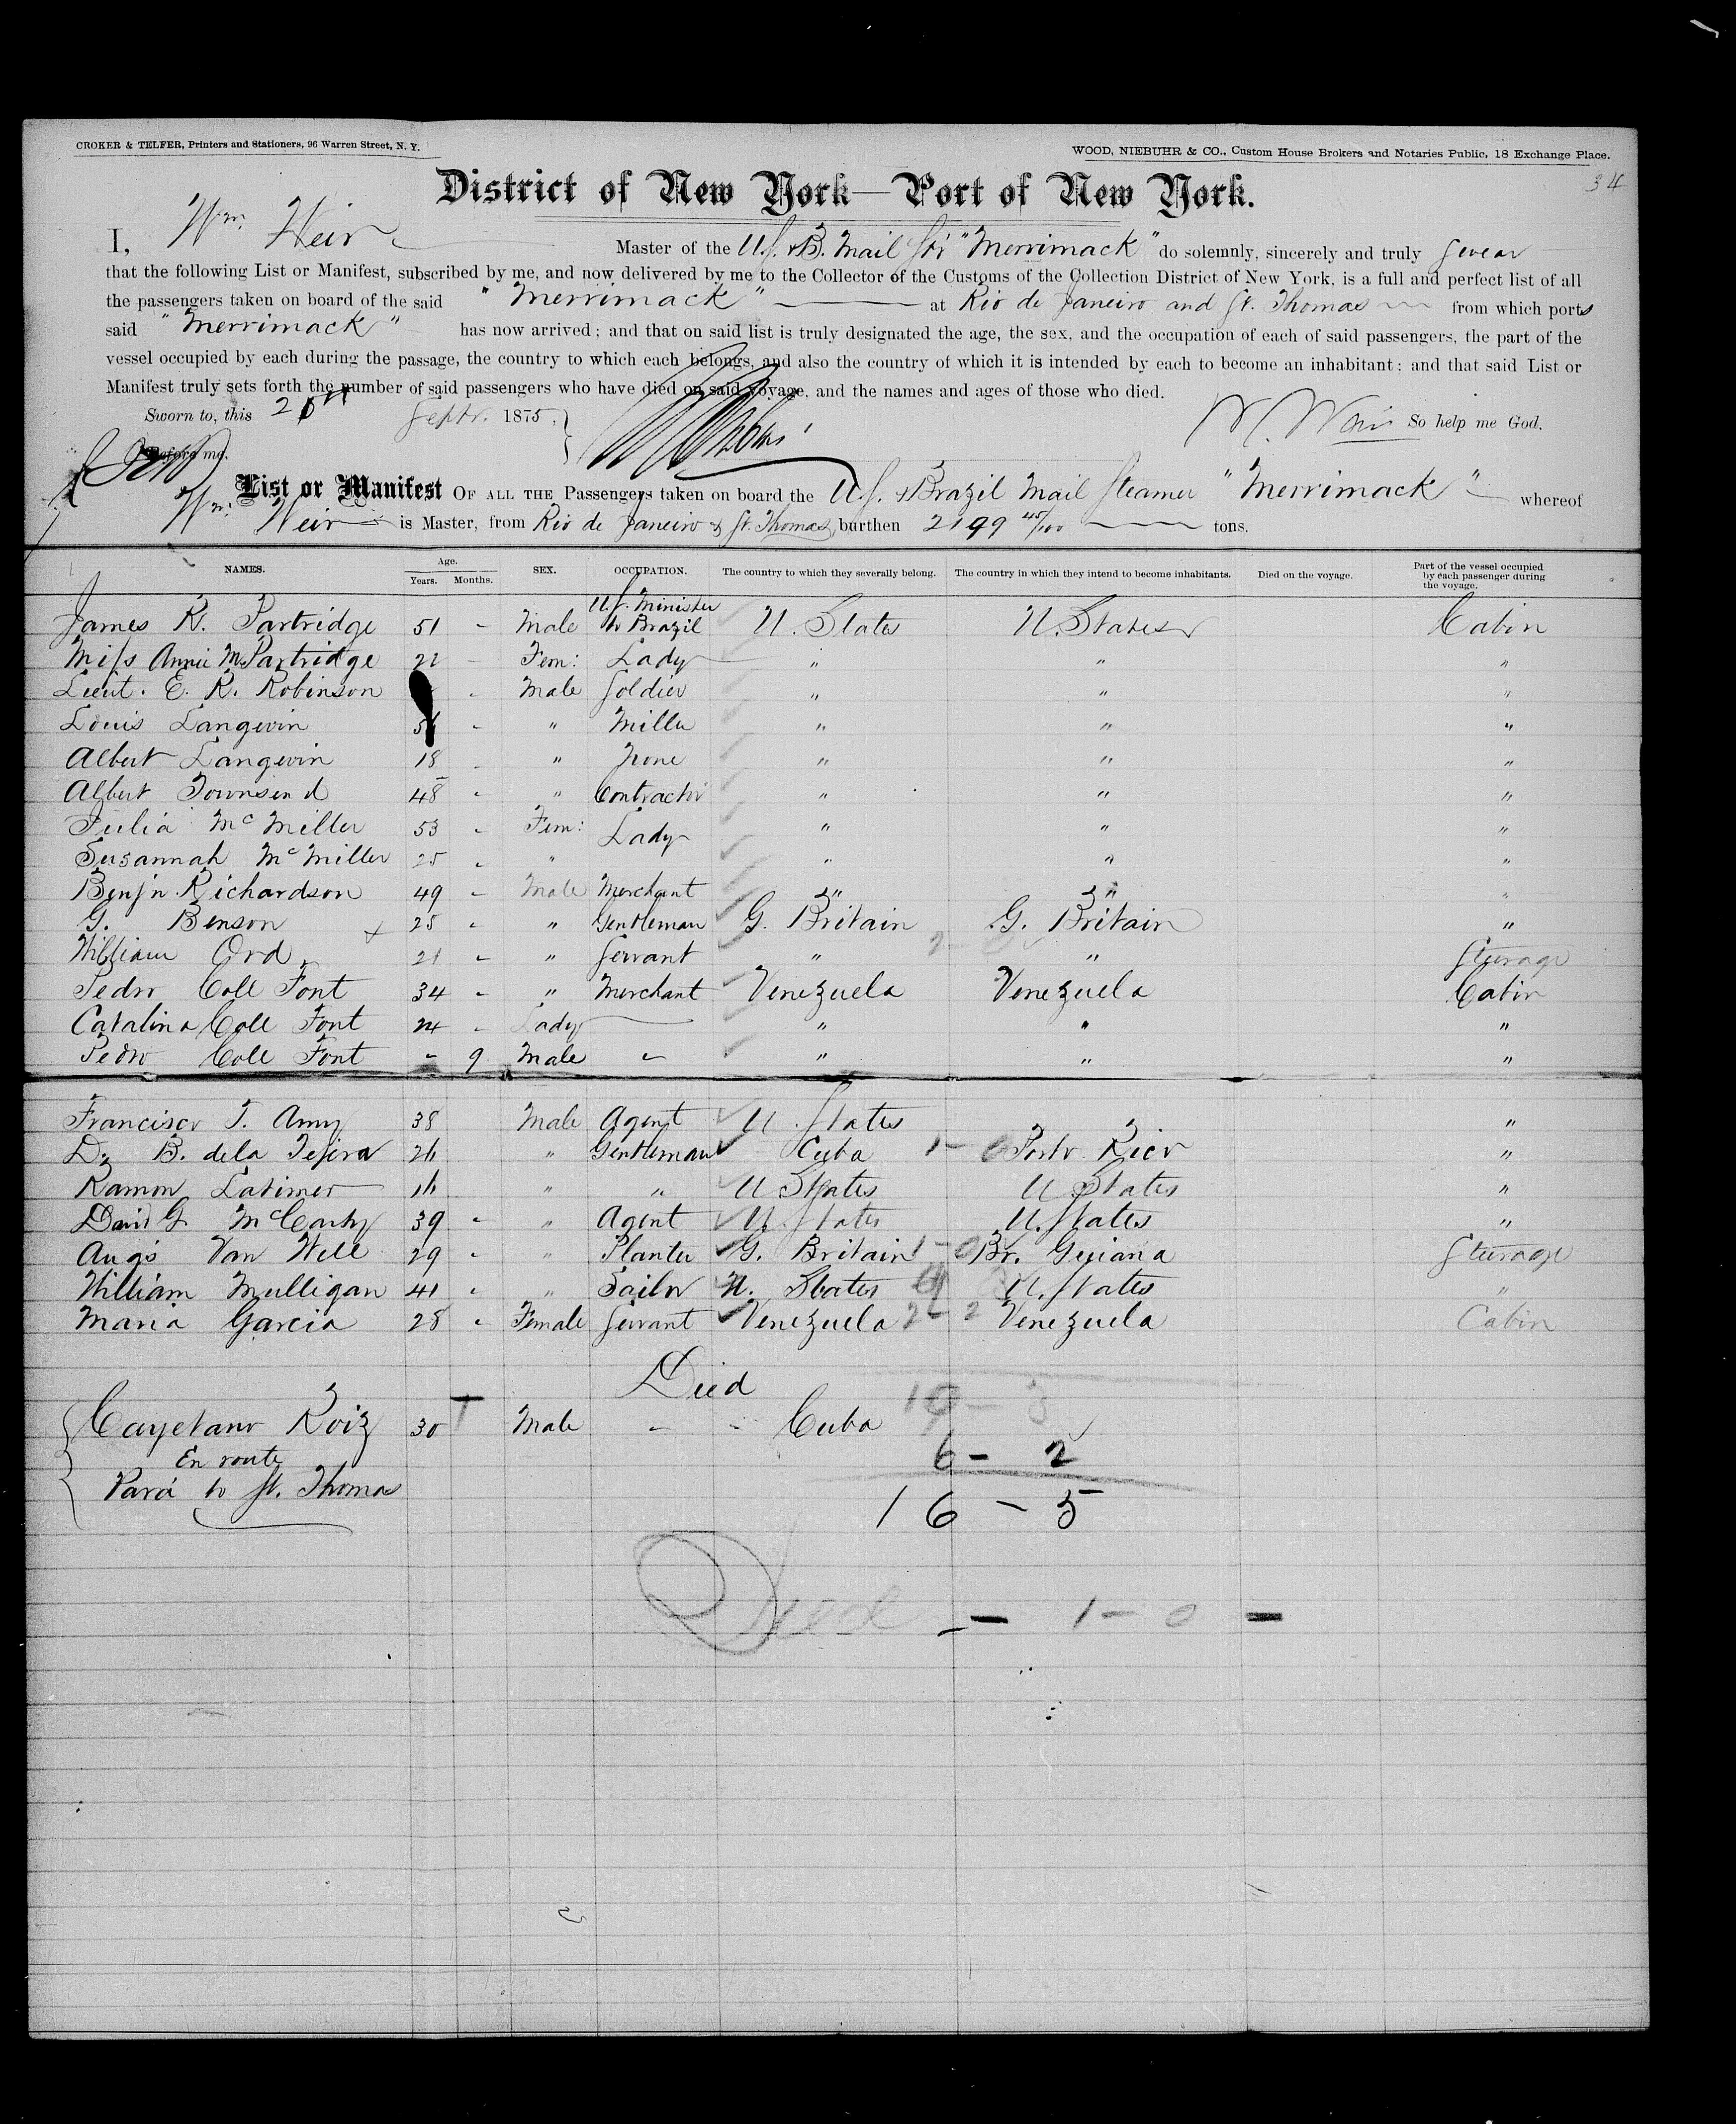 CROKER & TELFER, Printers and Stationers, 96 Warren Street, N. Y.
WOOD, NIEBUHR & CO., Custom House Brokers and Notaries Public, 18 Exchange Place.
34
District of New York—Port of New York.
I, Wm. Weir Master of the U.S. & B. Mail Str "Merrimack" do solemnly, sincerely and truly swear
that the following List or Manifest, subscribed by me, and now delivered by me to the Collector of the Customs of the Collection District of New York, is a full and perfect list of all
the passengers taken on board of the said "Merrimack" at Rio de Janeiro and St. Thomas from which ports
said "Merrimack" has now arrived; and that on said list is truly designated the age, the sex, and the occupation of each of said passengers, the part of the
vessel occupied by each during the passage, the country to which each belongs, and also the country of which it is intended by each to become an inhabitant; and that said List or
Manifest truly sets forth the number of said passengers who have died on said voyage, and the names and ages of those who died.
Sworn to, this Septr. 1875, W. Weir So help me God.
Before me.
List or Manifest OF ALL THE Passengers taken on board the U.S. & Brazil Mail Steamer "Merrimack" whereof
Wm. Weir is Master, from Rio de Janeiro & St. Thomas, burthen 2199 45/100 tons.
NAMES. Age. Years. Months. SEX. OCCUPATION. The country to which they severally belong. The country in which they intend to become inhabitants. Died on the voyage. Part of the vessel occupied by each passenger during the voyage.
James R. Partridge 51 - Male U.S. Minister to Brazil U. States U. States Cabin
Miss Annie M. Partridge 22 - Fem: Lady " " "
Lieut. E. R. Robinson - Male Soldier " " "
Louis Langevin - " Miller " " "
Albert Langevin 18 - " None " " "
Albert Townsend 48 - " Contractor " " "
Julia McMiller 53 - Fem: Lady " " "
Susannah McMiller 25 - " " " "
Benjn Richardson 49 - Male Merchant " " "
G. Benson 25 - " Gentleman G. Britain G. Britain "
William Ord 21 - " Servant " " Steerage
Pedro Coll Font 34 - " Merchant Venezuela Venezuela Cabin
Catalina Coll Font 24 - Lady " " "
Pedro Coll Font - 9 Male - " " "
Francisco T. Amy 38 Male Agent U States "
B. de la Tejera 26 " Gentleman Cuba 1-0 Porto Rico "
Ramon Latimer 16 " " U States U States "
David G McCarty 39 - " Agent U. States U. States "
Augs Van Well 29 - " Planter G. Britain 1-0 Br. Guiana Steerage
William Mulligan 41 - " Sailor U. States U. States "
Maria Garcia 28 - Female Servant Venezuela 2-2 Venezuela Cabin
Died
Cayetano Roiz 30 Male - - Cuba
En route 6 - 2
Pará to St. Thomas
16 - 5
Died - 1 - 0 -